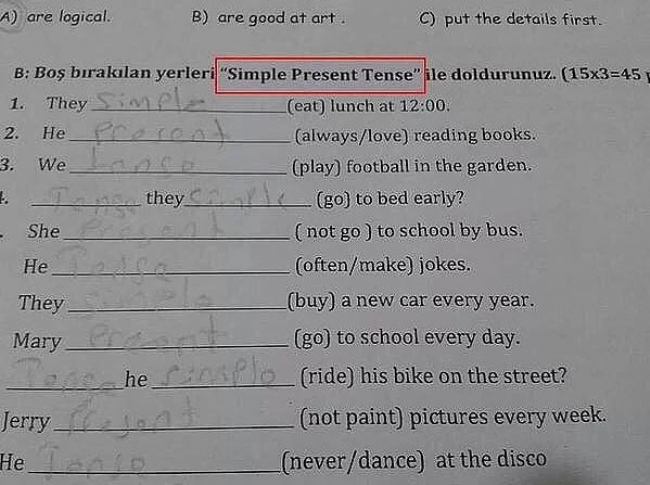 A) are logical. B) are good at art . C) put the details first.
B: Boş bırakılan yerleri "Simple Present Tense" ile doldurunuz. (15x3=45
1. They Simple (eat) lunch at 12:00.
2. He Present (always/love) reading books.
3. We Tense (play) football in the garden.
Tense they simple (go) to bed early?
She Present ( not go ) to school by bus.
He Tense (often/make) jokes.
They simple (buy) a new car every year.
Mary Present (go) to school every day.
Tense he simple (ride) his bike on the street?
Jerry Present (not paint) pictures every week.
He Tense (never/dance) at the disco